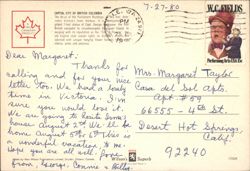 7-27-80
CAPITAL CITY OF BRITISH COLUMBIA
W.C. FIELDS
Performing Arts USA 15c
Dear Margaret,
Thanks for
calling and for your nice
letter too. We had a lovely
time in Victoria. I'm
sure you would love it.
We are going to
house August 3rd. We'll be
home August 5th or 6th. This is
a wonderful vacation to me.
Hope you are all well. Love
from George, Connie &
Mrs. Margaret Taylor
Casa del Sol Apts.
Apt # 59
66555 - 4th St.
Desert Hot Springs
Calif.
92240